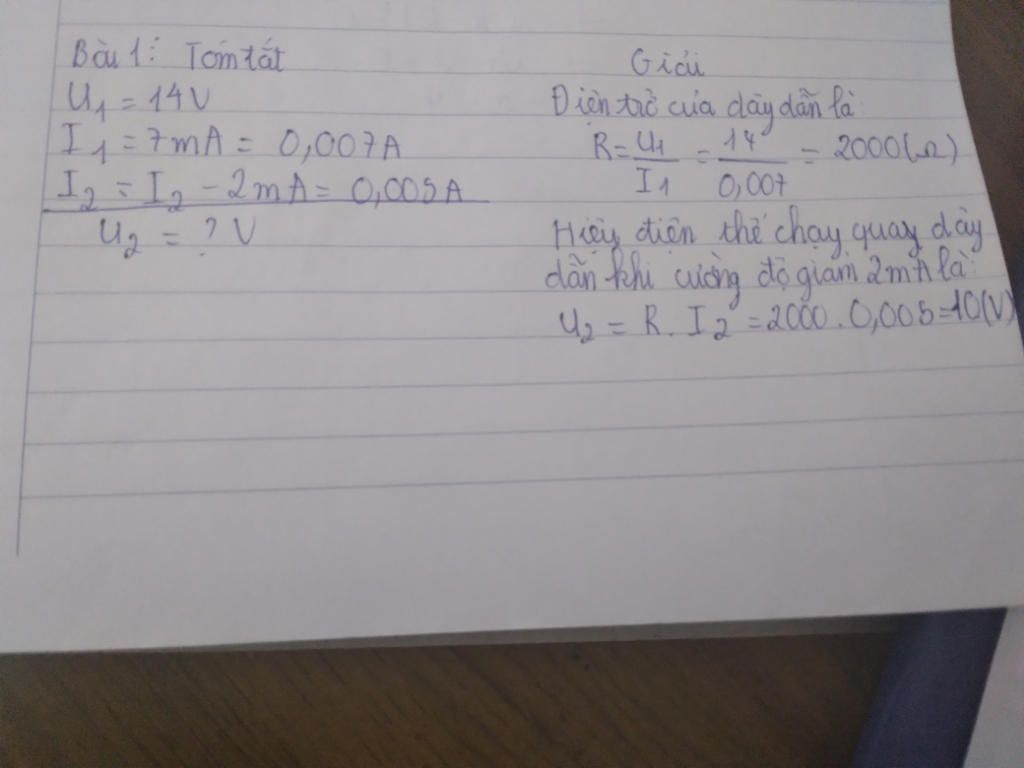 Bài 1: Tóm tắt
U1 = 14V
I1 = 7mA = 0,007A
I2 = I2 - 2mA = 0,005A
U2 = ? V
Giải
Điện trở của dây dẫn là:
R = U1/I1 = 14/0,007 = 2000(Ω)
Hiệu điện thế chạy quay dây
dẫn khi cường độ giảm 2mA là:
U2 = R. I2 = 2000 . 0,005=10(V)